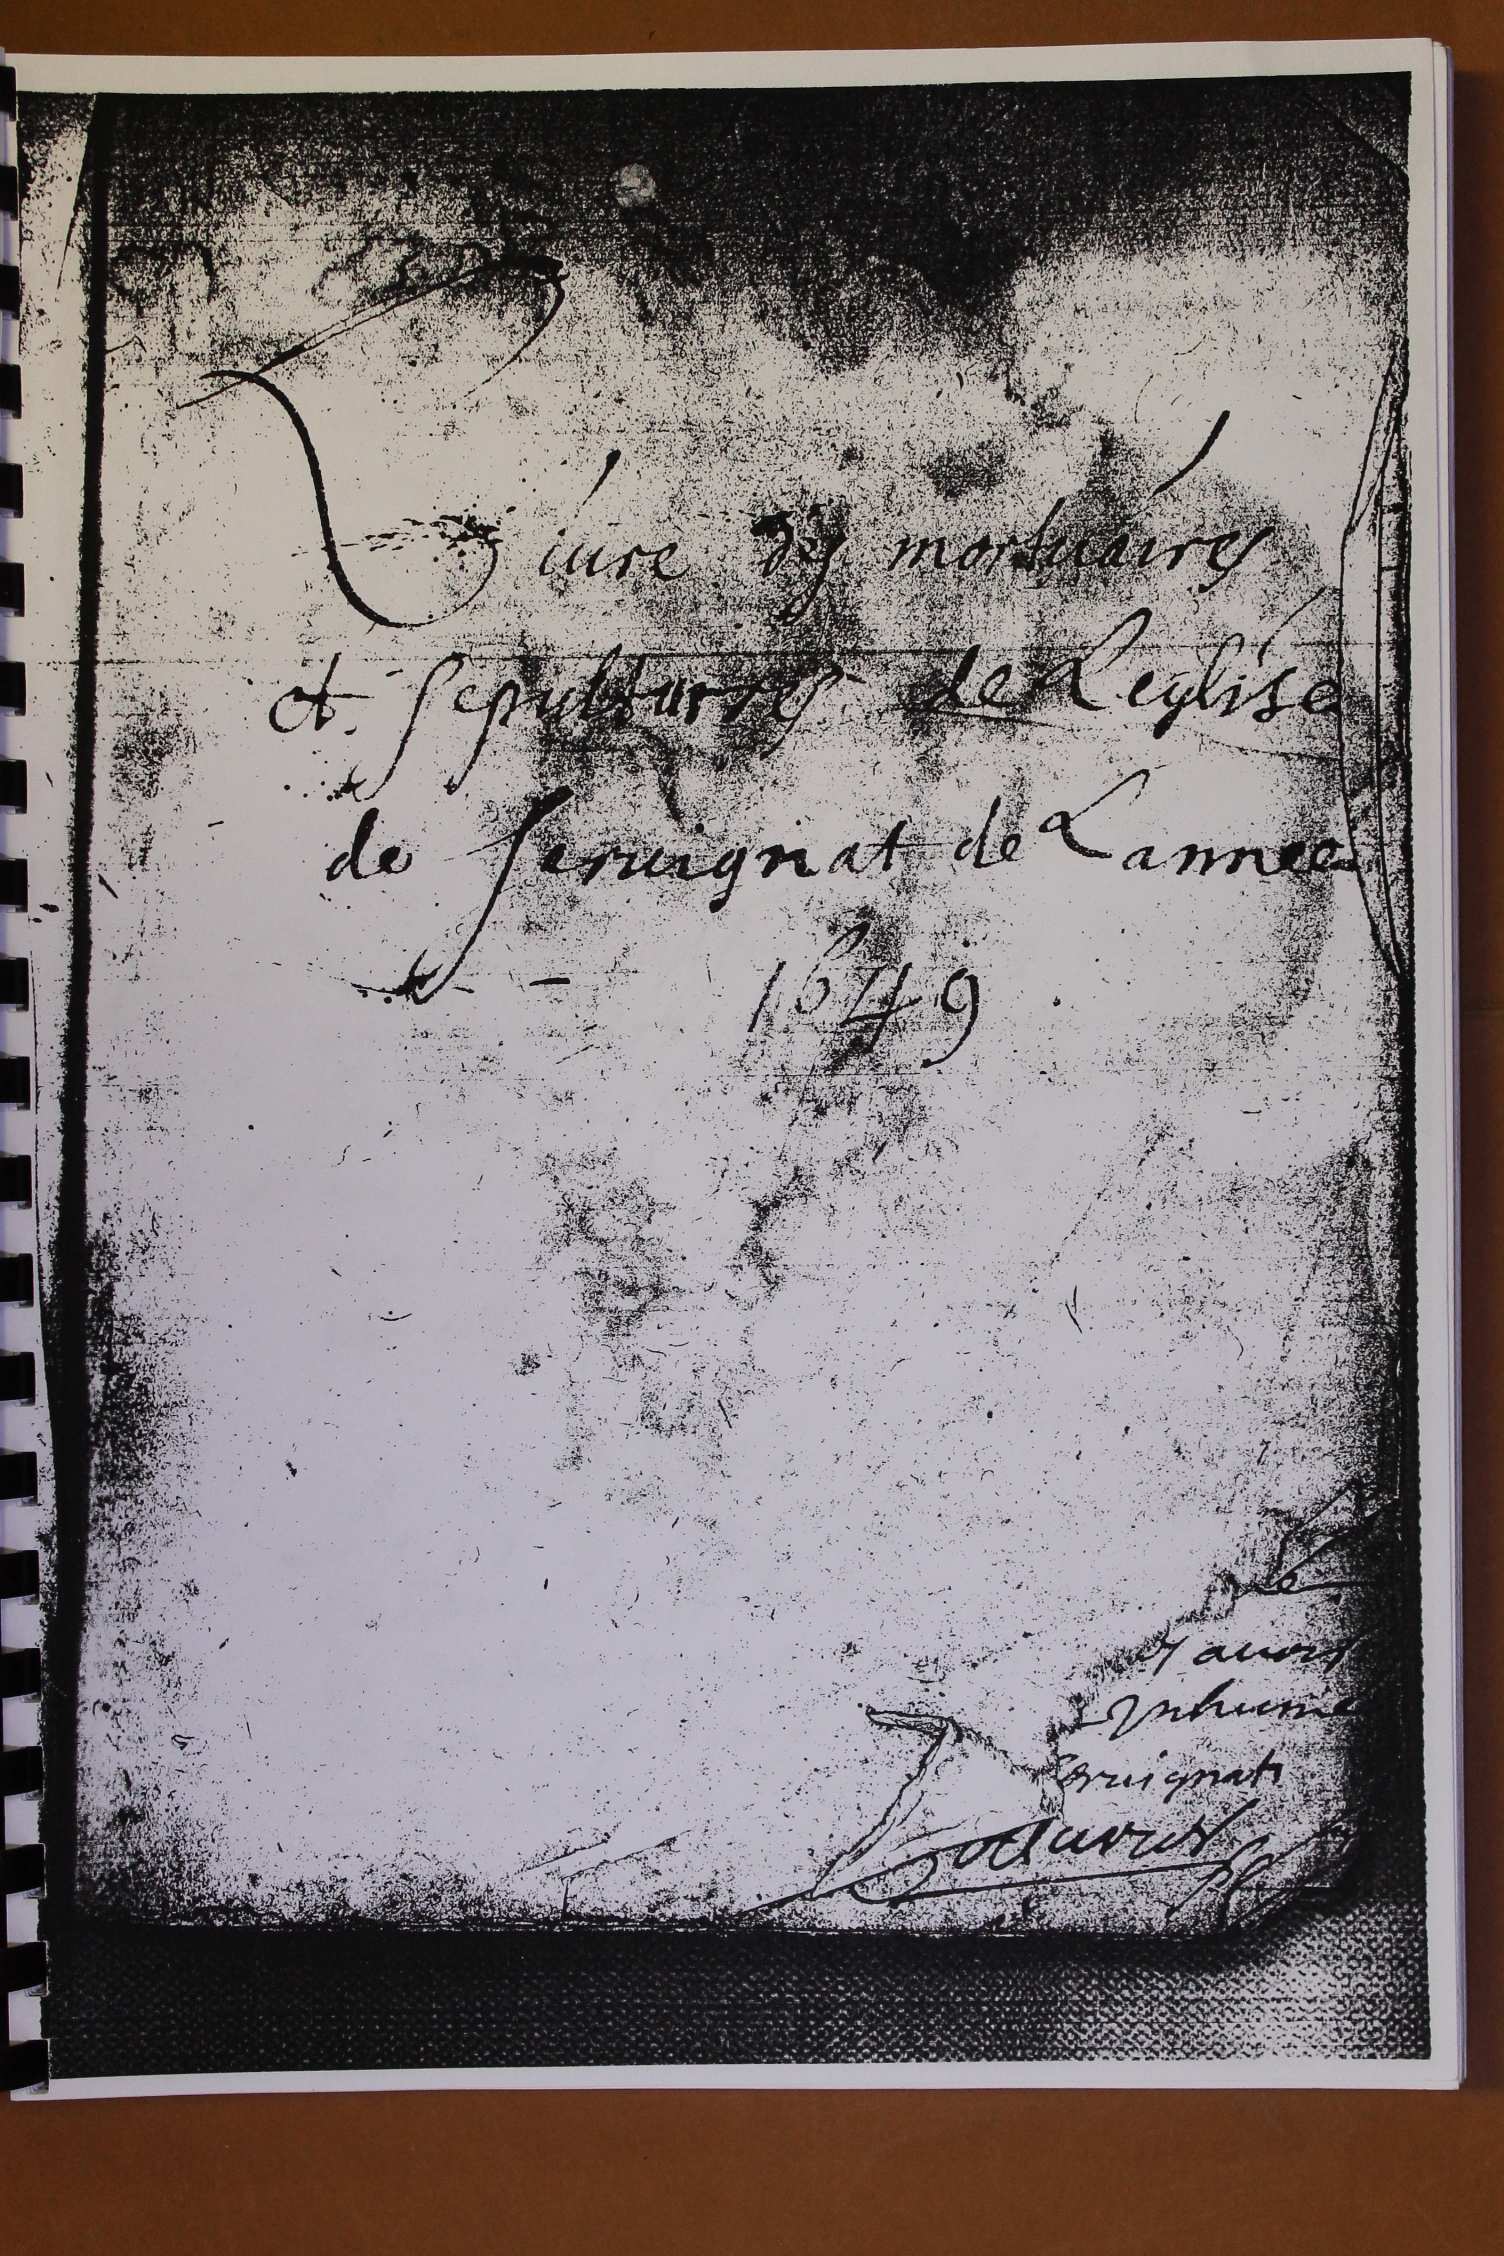 Liure des mortuaires
et sepultures de Leglise
de seruignat de Lannee
1649
Le
auons
Inhume
seruignat